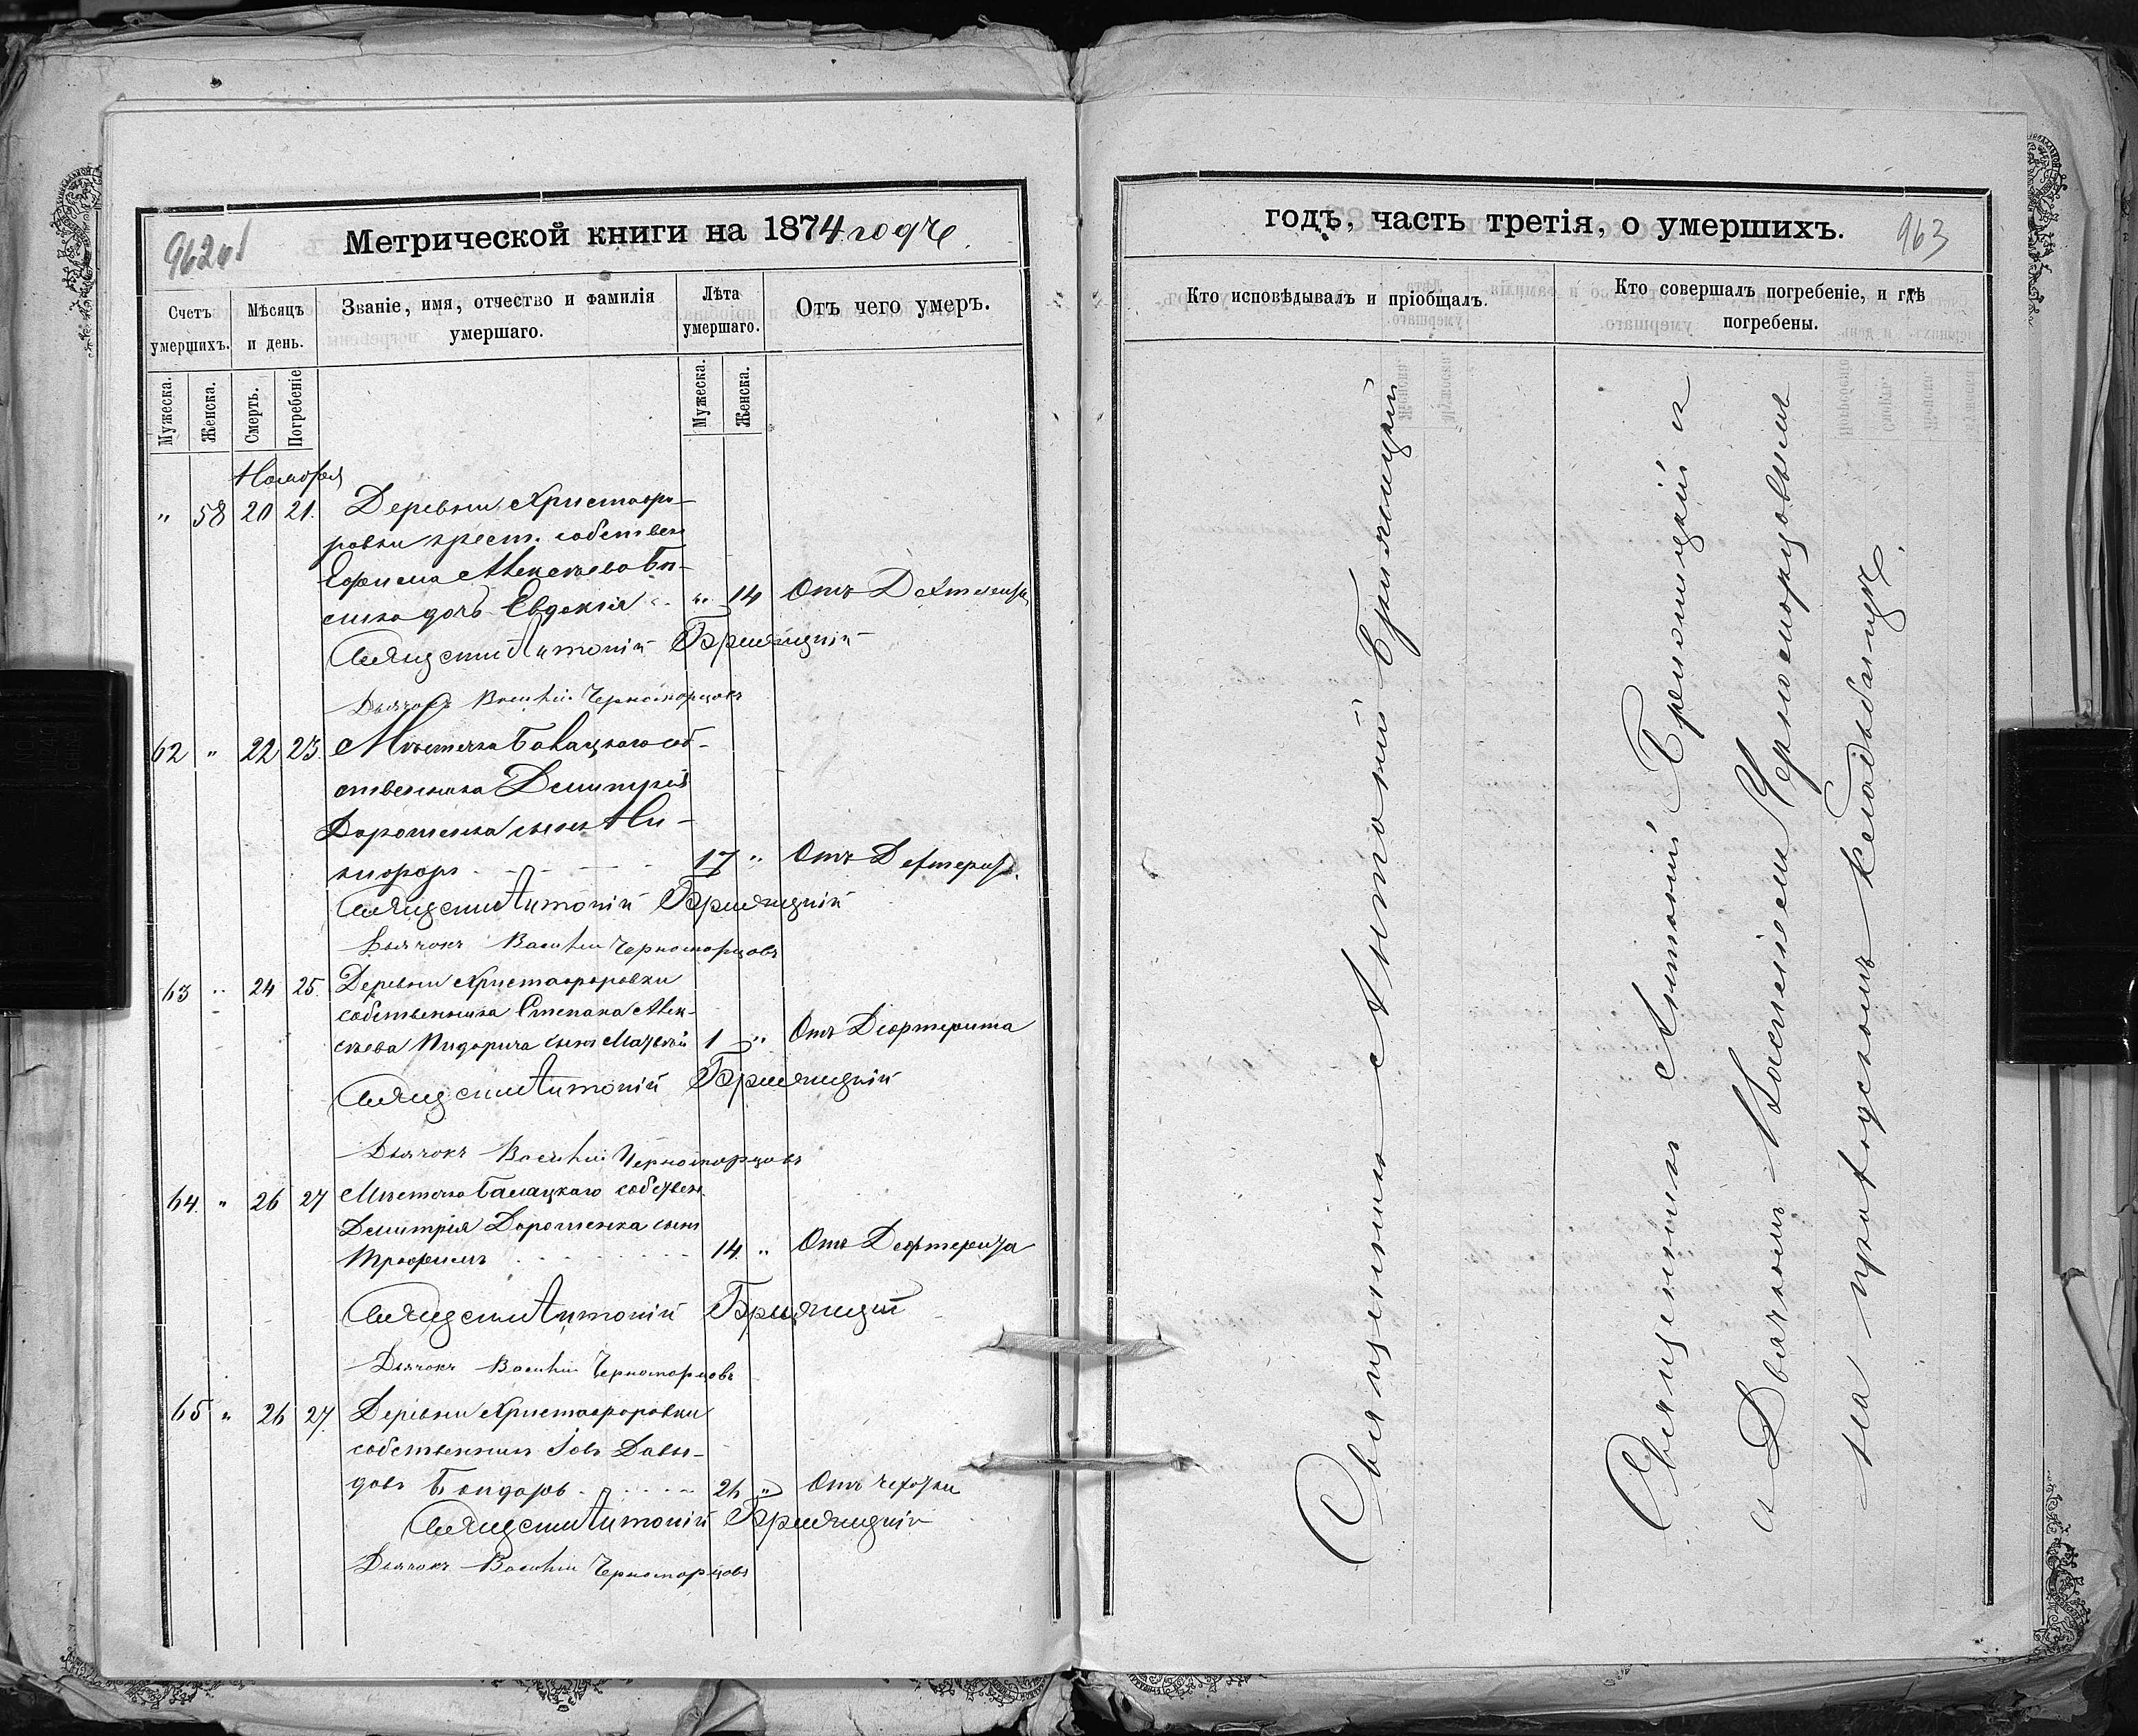 962об
Метрической книги на 1874 годъ.
Счетъ умершихъ.
Мѣсяцъ и день.
Званіе, имя, отчество и фамилія умершаго.
Лѣта умершаго.
Отъ чего умеръ.
Мужеска.
Женска.
Смерть.
Погребеніе
Мужеска.
Женска.
Ноября
" 58 20 21. Деревни Христофо-
ровки крест. собствен
Ефима Алексѣева
дочь Евдокія " 14 Отъ Дефтерита
Священник Антоній Бршаницкій
Дьячокъ Василій Черноморцовъ
62 " 22 23. Мѣстечка Балацкого соб-
ственника Димитрія
Дорошенка сынъ Ни-
кифоръ 17 " Отъ Дефтерита
Священник Антоній Бршаницкій
Дьячокъ Василій Черноморцовъ
63 " 24 25. Деревни Христофоровки
собственника Степана Алек-
сѣева Пидорича сынъ Матвѣй 1 " Отъ Дефтерита
Священник Антоній Бршаницкій
Дьячокъ Василій Черноморцовъ
64. " 26 27 Мѣстечка Балацкаго собствен.
Димитрія Дорошенка сынъ
Трофимъ 14. " Отъ Дефтерита
Священник Антоній Бршаницкій
Дьячокъ Василій Черноморцовъ
65 " 26 27. Деревни Христофоровки
собственникъ Іовъ Давы-
довъ Бондарь 26 " Отъ чахотки
Священник Антоній Бршаницкій
Дьячокъ Василій Черноморцовъ
годъ, часть третія, о умершихъ.
963
Кто исповѣдывалъ и пріобщалъ.
Кто совершалъ погребеніе, и гдѣ погребены.
Священникъ Антоній Бршаницкій
Священникъ Антоній Бршаницкій
съ Дьячкомъ Василіемъ Черноморцовымъ
на приходскомъ кладбищѣ.